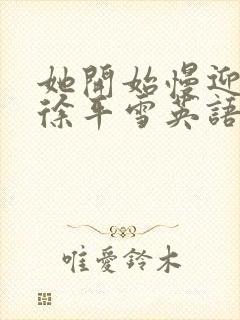 她開始慢迎
徐平雪英語
唯愛鈴木